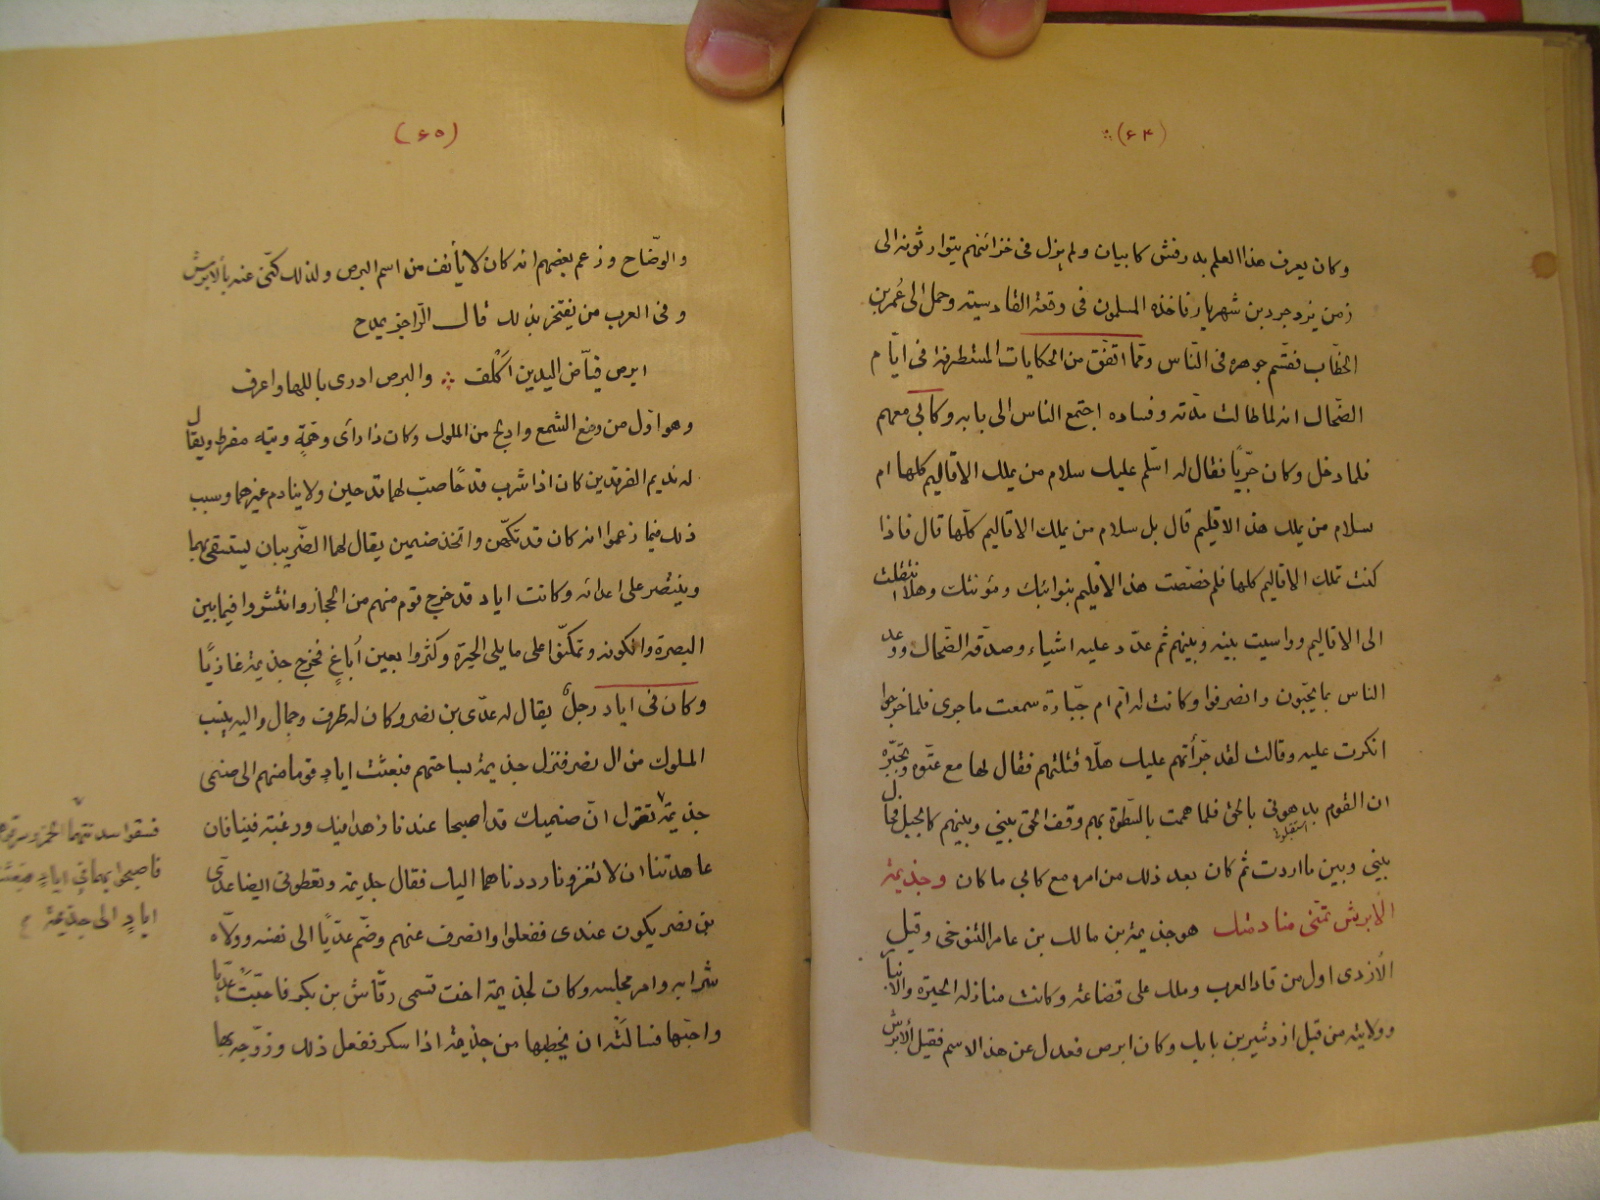 (۶۴)
وكان يعرف هذا العلم بدرفش كابيان ولم يزل فى خزائنهم يتوارثونه الى
زمن يزدجرد بن شهريار فاخذه المسلمون فى وقعة القادسيته وحمل الى عُمر بن
الخطّاب فقسّم جوهره فى النّاس وممّا اتفق من الحكايات المستطرفة فى ايّام
الضحاك انه لما طالت مدّته وفساده اجتمع الناس الى بابه وكابى معهم
فلما دخل وكان جرّيًا فقال له اسّلم عليك سلام من يملك الاقاليم كلها ام
سلام من يملك هذ الاقليم قال بل سلام من يملك الاقاليم كلّها قال فاذا
كنت تملك الاقاليم كلها فلم خصّصت هذ الاقليم بنوائبك ومؤنتك وهلّا انتقلت
الى الاقاليم وواسيت بينه وبينهم ثم عدّد عليه اشياء وصدّقه الضّحاك ووعد
الناس بما يحبّون وانصرفوا وكانت له امّ ام جبّارة سمعت ما جرى فلما خرجوا
انكرت عليه وقالت لقد جرّأتهم عليك هلّا قتلتهم فقال لها مع عتوّه وتجبّره
ان القوم بدهونى بالحق فلما هممت بالسّطوة بهم وقف الحق بينى وبينهم كالجبل فحال
استقبلوا
بينى وبين ما اردت ثم كان بعد ذلك من امره مع كابى ما كان وجذيمة
الابرش تمنّى منادمتك هو جذيمة بن مالك بن عامر التنوخى وقيل
الأزدى اول من قاد العرب وملك على قضاعة وكانت منازله الحيرة والانبار
وولايته من قبل اردشير بن بابك وكان ابرص فعدل عن هذ الاسم فقيل الابرش
(۶۵)
والوضّاح وزعم بعضهم انه كان لا يأنف من اسم البرص ولذلك كنّى عنه بالابرش
وفى العرب من يفتخر بذلك قال الرّاجز يمدح
ابرص فيّاض اليدين اكلف ∴ والبرص ادرى باللها واعرف
وهو اوّل من وضع الشمع وادلج من الملوك وكان ذا رأى وهمّة وتيه مفرط ويقال
له نديم الفرقدين كان اذا شرب قدحًا صبّ لهما قدحين ولا ينادم غيرهما وسبب
ذلك فيما زعموا انه كان قد تكهّن واتخذ صنمين يقال لهما الضّيزبان ليستسقى بهما
وينتصر على اعدائه وكانت اياد قد خرج قوم منهم من الحجاز وانتشروا فيما بين
البصرة والكوفه وتمكنوا على ما يلى الحيرة وكثروا بعين اُباغ فخرج جذيمة غازيًا
وكان فى اياد رجلٌ يقال له عدّى بن نصر وكان له ظرف وجمال واليه ينسب
الملوك من ال نصر فنزل جذيمة بساحتهم فبعثت اياد قوما منهم الى صنمى
جذيمة تقول انّ صنميك قد اصبحا عندنا زهدا فيك ورغبة فينا فان
عاهدتنا ان لا تغزونا رددناهما اليك فقال جذيمة وتعطونى ايضا عدى
بن نصر يكون عندى ففعلوا وانصرف عنهم وضم عديًّا الى نفسه وولّاه
شرابه وامر مجلسه وكان لجذيمة اخت تسمى رقّاش بن بكر فاحبّت عديّا
واحبّها فسالته ان يخطبها من جذيمة اذا سكر ففعل ذلك وزوّجه بها
فسقوا سدنتهما الخمر وسرقوهما
فاصبحوا بهما فى اياد فبعثت
اياد الى جذيمة